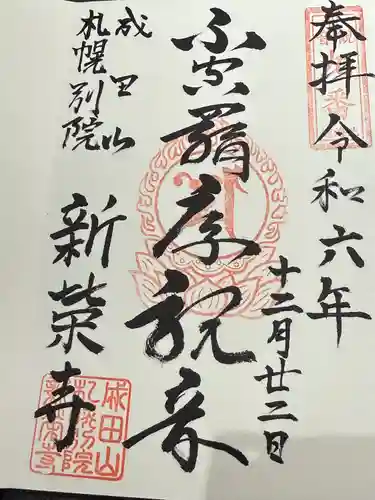 奉拝
令和六年
十二月廿二日
不空羂索観音
成田山
札幌別院
新栄寺
成田山
札幌別院
新栄寺